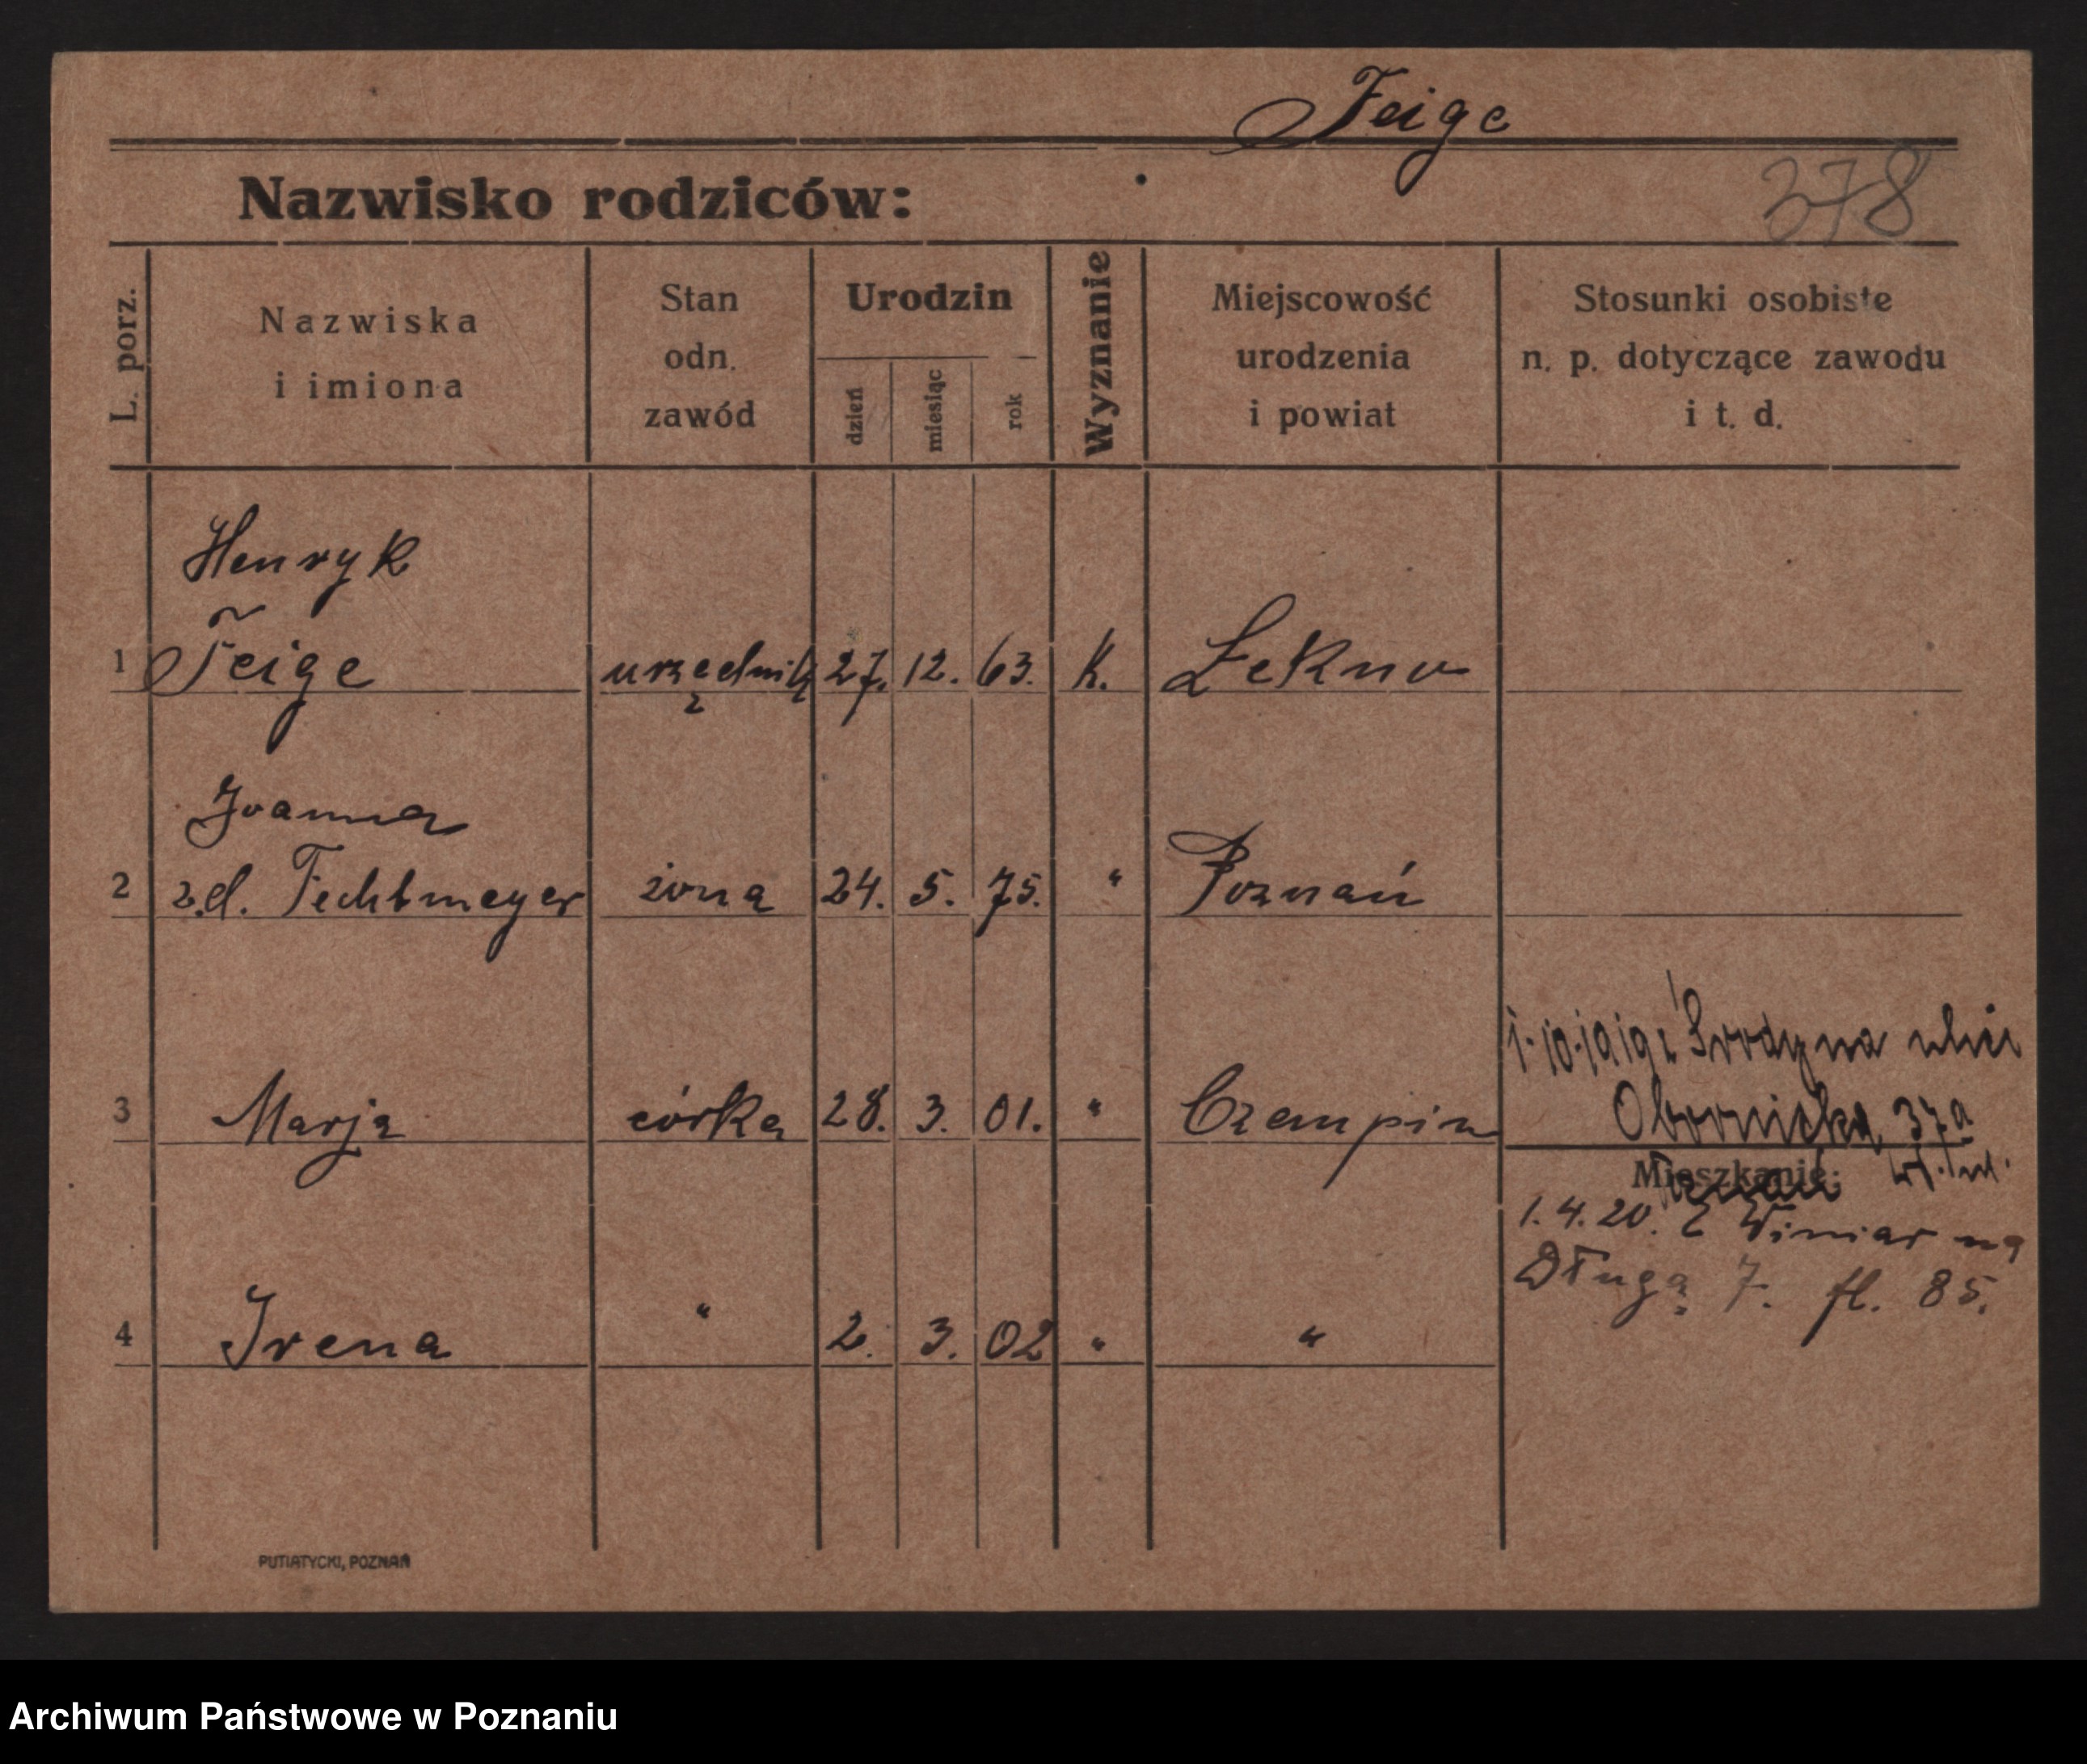 Feige
Nazwisko rodziców:
378
L. porz.
Nazwiska
i imiona
Stan
odn.
zawód
Urodzin
dzień
miesiąc
rok
Wyznanie
Miejscowość
urodzenia
i powiat
Stosunki osobiste
n. p. dotyczące zawodu
i t. d.
Henryk
1 Feige urzędnik 27. 12. 63. K. Łekno
Joanna
2 z.d. Fechtmeyer żona 24. 5. 75. " Poznań
1.10.1919 z Środy na ulicę
3 Marja córka 28. 3. 01. " Czempin Obornicka 37a
Mieszkanie:
1.4.20. Z Winiar na
Długą 7. fl. 85.
4 Irena " 2. 3. 02 " "
PUTIATYCKI, POZNAŃ
Archiwum Państwowe w Poznaniu